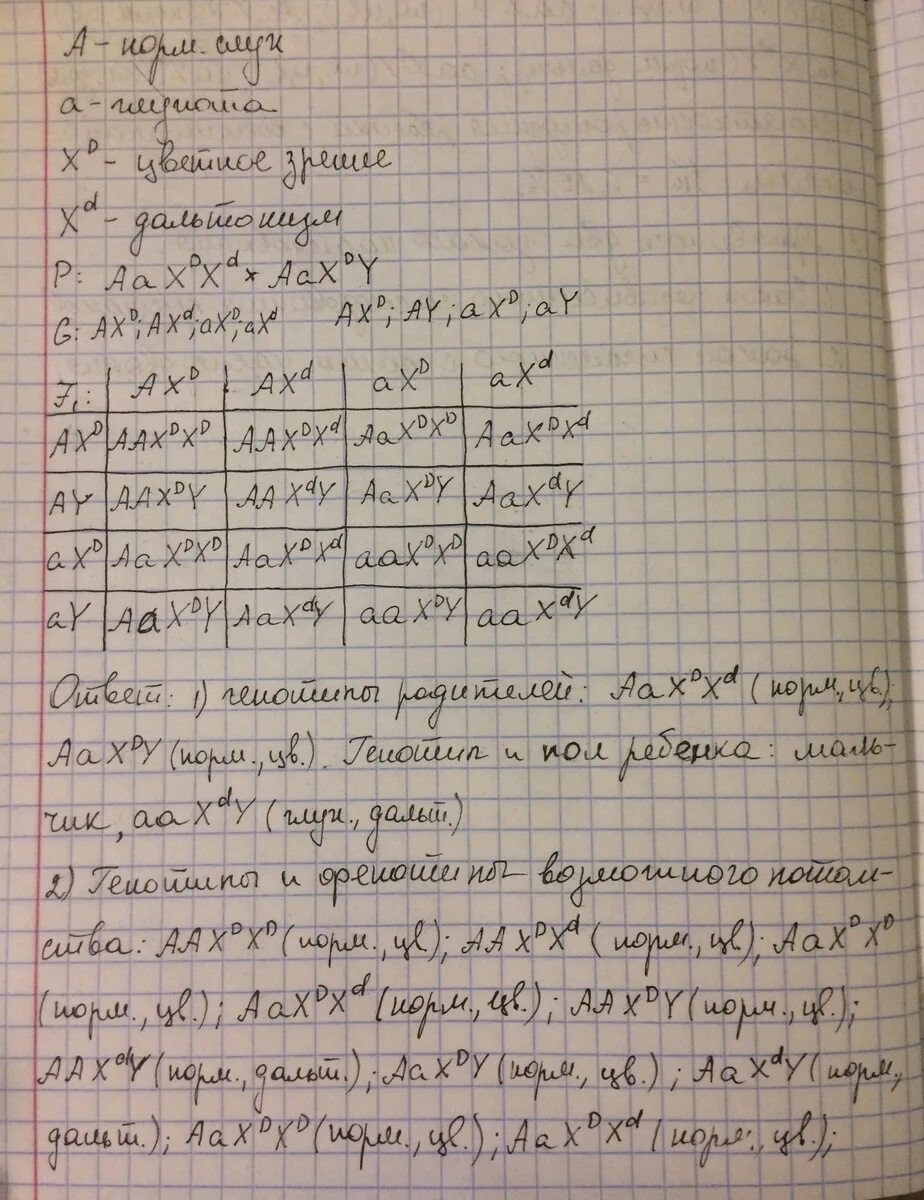 A – норм. слух
a – глухота
Xᴰ – цветное зрение
Xᵈ – дальтонизм
P: Aa XᴰXᵈ × AaXᴰY
G: AXᴰ; AXᵈ; aXᴰ; aXᵈ AXᴰ; AY; aXᴰ; aY
F₁: | AXᴰ | AXᵈ | aXᴰ | aXᵈ
AXᴰ | AAXᴰXᴰ | AAXᴰXᵈ | AaXᴰXᴰ | AaXᴰXᵈ
AY | AAXᴰY | AAXᵈY | AaXᴰY | AaXᵈY
aXᴰ | AaXᴰXᴰ | AaXᴰXᵈ | aaXᴰXᴰ | aaXᴰXᵈ
aY | AaXᴰY | AaXᵈY | aaXᴰY | aaXᵈY
Ответ: 1) генотипы родителей: AaXᴰXᵈ (норм., цв.);
AaXᴰY (норм., цв.). Генотип и пол ребенка: маль-
чик, aaXᵈY (глух., дальт.)
2) Генотипы и фенотипы возможного потом-
ства: AAXᴰXᴰ (норм., цв.); AAXᴰXᵈ (норм., цв.); AaXᴰXᴰ
(норм., цв.); AaXᴰXᵈ (норм., цв.); AAXᴰY (норм., цв.);
AAXᵈY (норм., дальт.); AaXᴰY (норм., цв.); AaXᵈY (норм.,
дальт.); AaXᴰXᴰ (норм., цв.); AaXᴰXᵈ (норм., цв.);